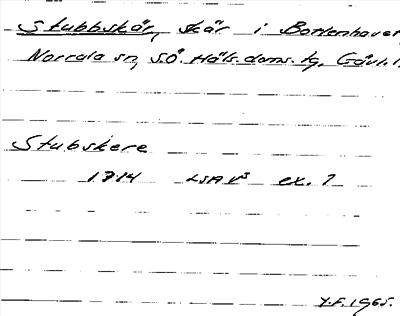 Stubbskär, skär i Bottenhavet,
Norrala sn, S.Ö. Häls. doms. tg, Gävl. l.
Stubskere
1714 LSA V³ ex. 7
Y.F. 1965.